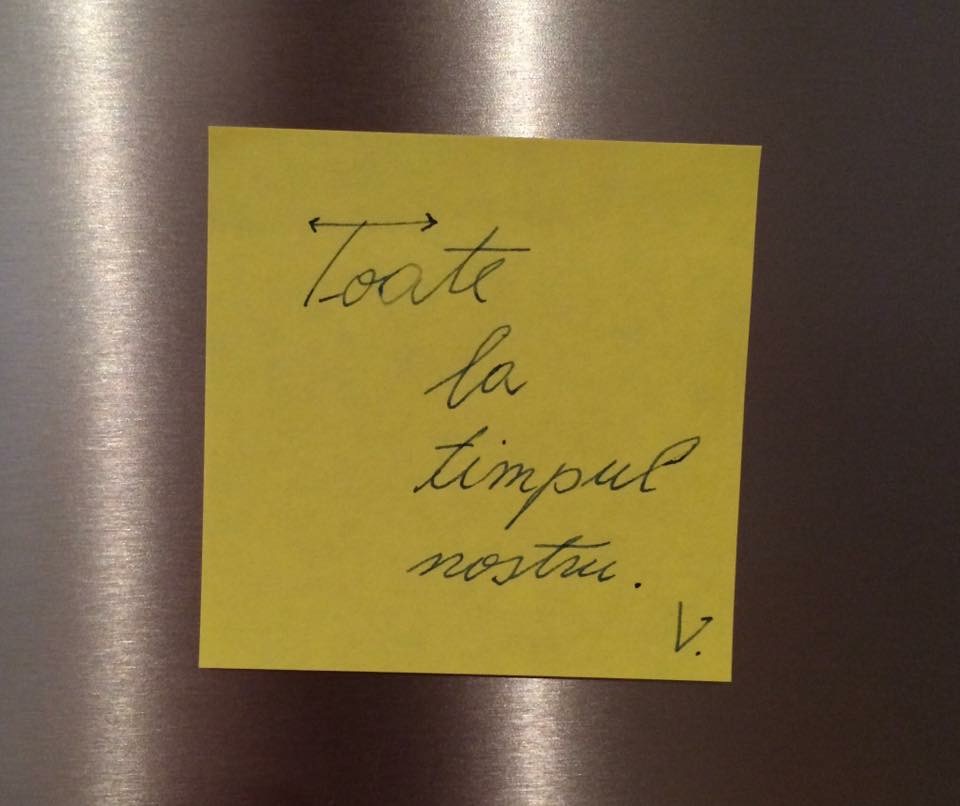 Toate
la
timpul
nostru.
V.